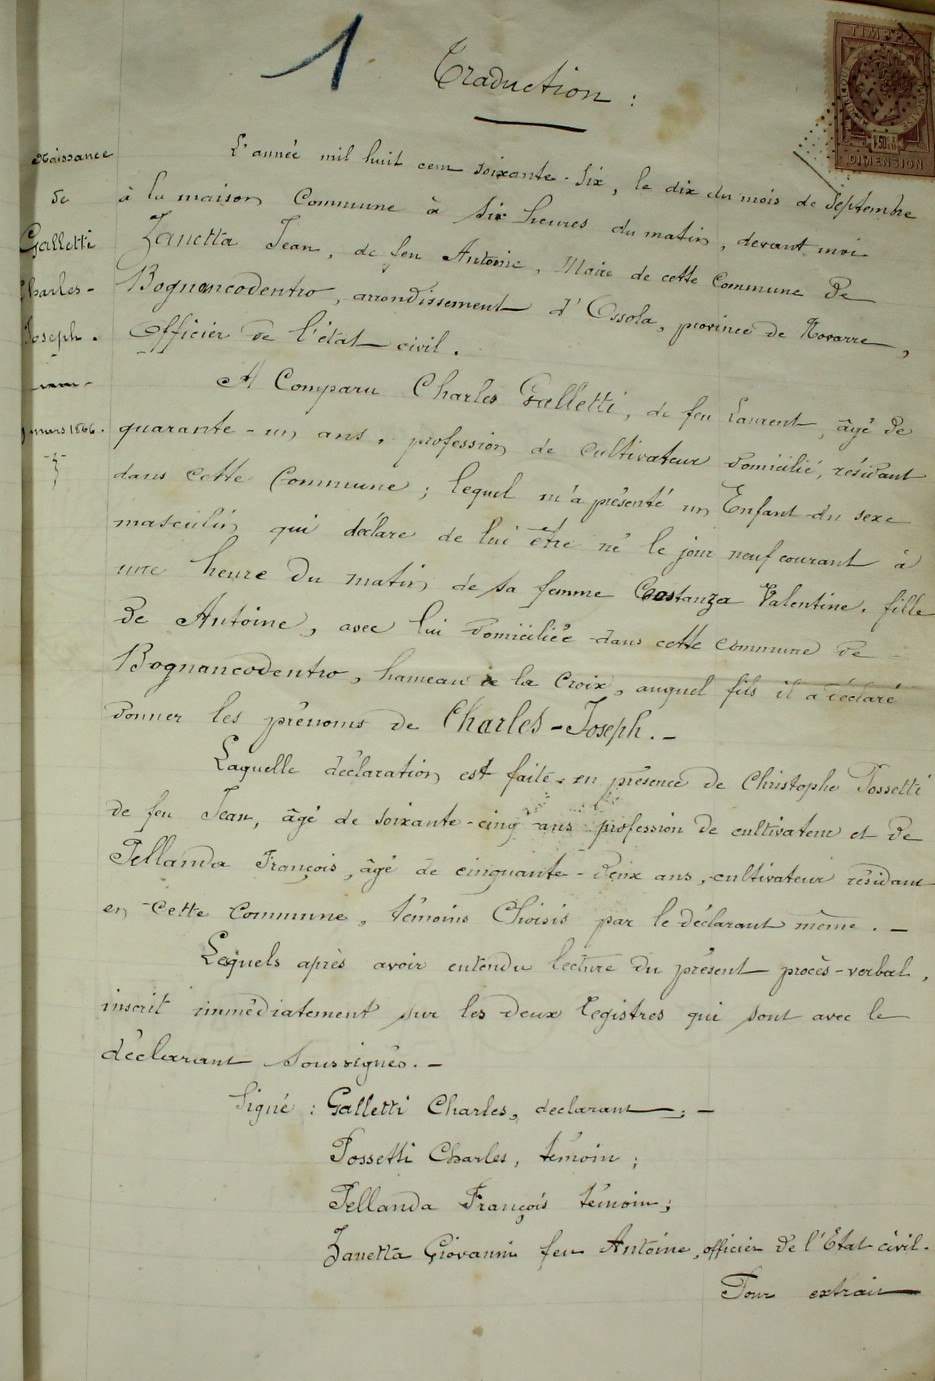 1
Traduction :
TIMBRE
DIMENSION
Naissance
de
Galletti
Charles-
Joseph.
mars 1866.
L'année mil huit cent soixante-six, le dix du mois de Septembre
à la maison Commune à six heures du matin, devant moi
Zanetta Jean, de feu Antoine, Maire de cette Commune de
Bognancodentro, arrondissement d'Ossola, province de Novarre,
Officier de l'état civil.
A Comparu Charles Galletti, de feu Laurent, âgé de
quarante-un ans, profession de cultivateur domicilié, résidant
dans cette Commune ; lequel m'a présenté un Enfant du sexe
masculin qui déclare de lui être né le jour neuf courant à
une heure du matin de sa femme Costanza Valentine, fille
de Antoine, avec lui domiciliée dans cette commune de
Bognancodentro, hameau de la Croix, auquel fils il a déclaré
donner les prénoms de Charles-Joseph. -
Laquelle déclaration est faite en présence de Christophe Possetti
de feu Jean, âgé de soixante-cinq ans profession de cultivateur et de
Pellanda François, âgé de cinquante-deux ans, cultivateur résidant
en cette Commune, témoins Choisis par le déclarant même. -
Lequels après avoir entendu lecture du présent procès-verbal,
inscrit immédiatement sur les deux Registres qui sont avec le
déclarant soussignés. -
Signé : Galletti Charles, declarant ; -
Possetti Charles, témoin ;
Pellanda François témoin ;
Zanetta Giovanni feu Antoine, officier de l'Etat civil.
Pour extrait